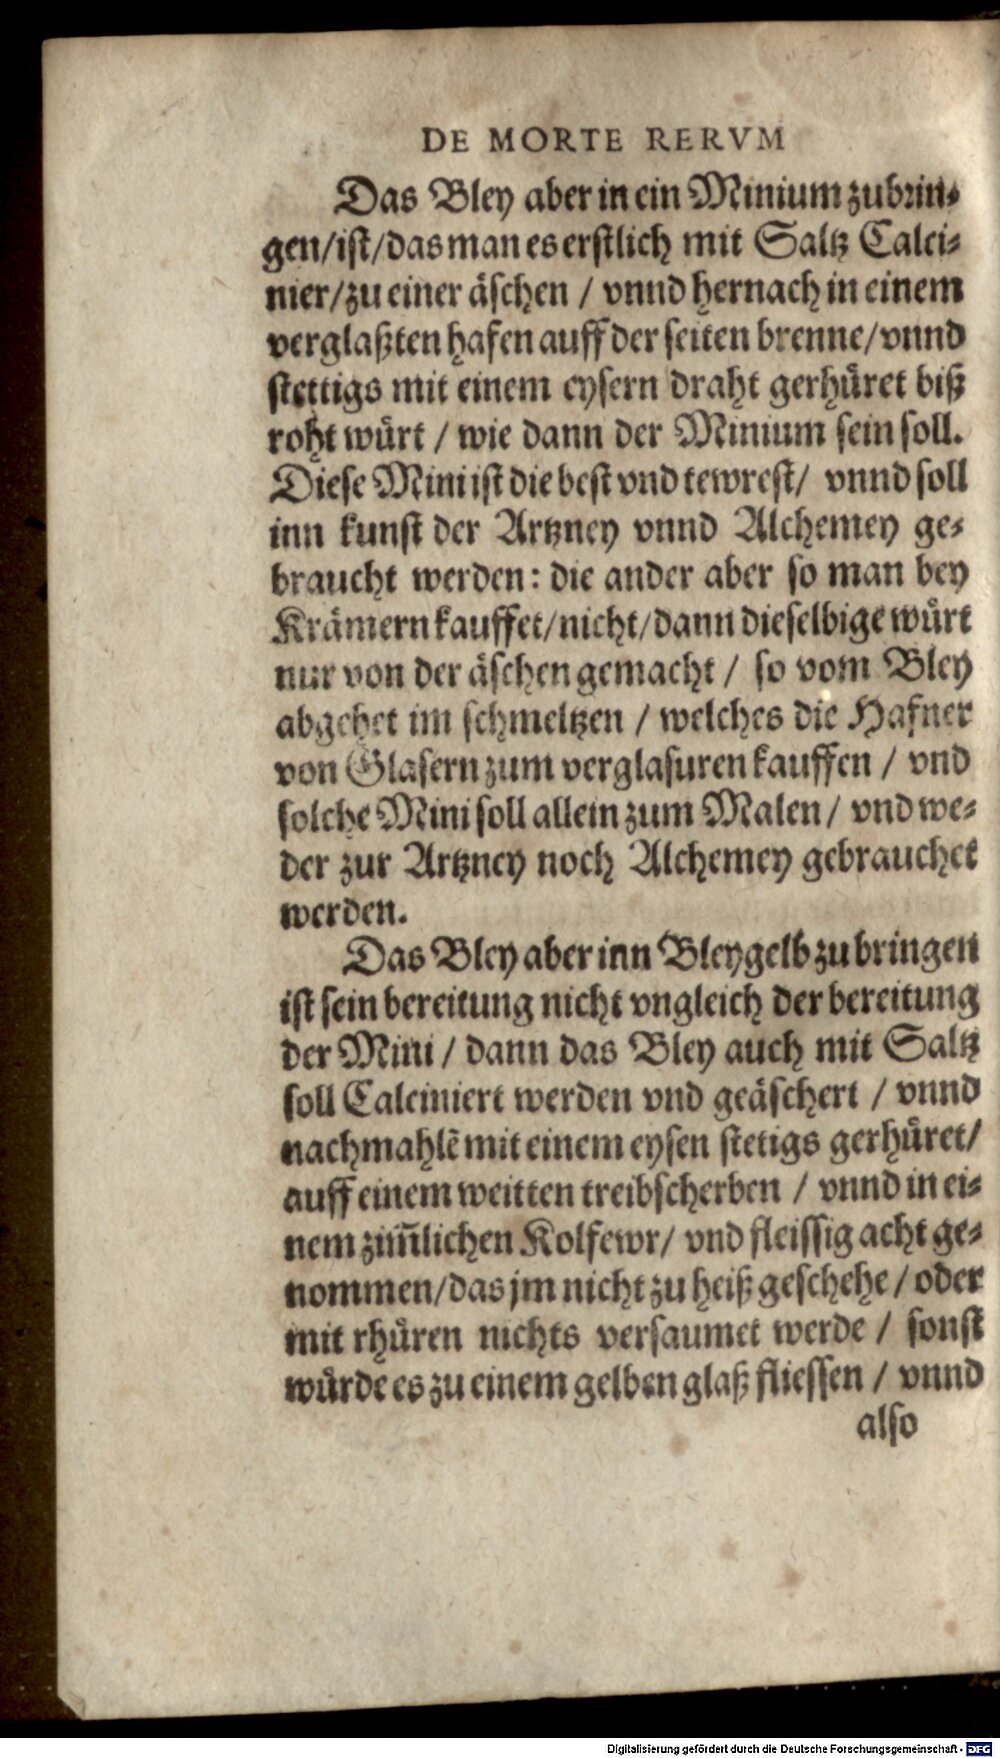 DE MORTE RERVM
Das Bley aber in ein Minium zubrin⸗
gen/ist/das man es erstlich mit Saltz Calci⸗
nier/zu einer äschen / vnnd hernach in einem
verglaßten hafen auff der seiten brenne/vnnd
stettigs mit einem eysern draht gerhüret biß
roht würt / wie dann der Minium sein soll.
Diese Mini ist die best vnd tewrest/ vnnd soll
inn kunst der Artzney vnnd Alchemey ge⸗
braucht werden: die ander aber so man bey
Krämern kauffet/nicht/dann dieselbige würt
nur von der äschen gemacht / so vom Bley
abgehet im schmeltzen / welches die Hafner
von Glasern zum verglasuren kauffen / vnd
solche Mini soll allein zum Malen/ vnd we⸗
der zur Artzney noch Alchemey gebrauchet
werden.
Das Bley aber inn Bleygelb zu bringen
ist sein bereitung nicht vngleich der bereitung
der Mini / dann das Bley auch mit Saltz
soll Calciniert werden vnd geäschert / vnnd
nachmahlẽ mit einem eysen stetigs gerhüret/
auff einem weitten treibscherben / vnnd in ei⸗
nem zim̃lichen Kolfewr/ vnd fleissig acht ge⸗
nommen/das jm nicht zu heiß geschehe / oder
mit rhüren nichts versaumet werde / sonst
würde es zu einem gelben glaß fliessen / vnnd
also
Digitalisierung gefördert durch die Deutsche Forschungsgemeinschaft - DFG